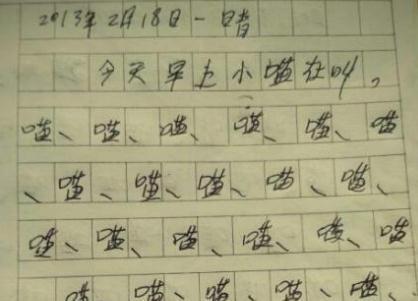 2013年2月18日 一 晴
今天早上小喵在叫。
喵、喵、喵、喵、喵、喵
、喵、喵、喵、喵、喵、
喵、喵、喵、喵、喵、喵
喵、喵、喵、喵、喵、